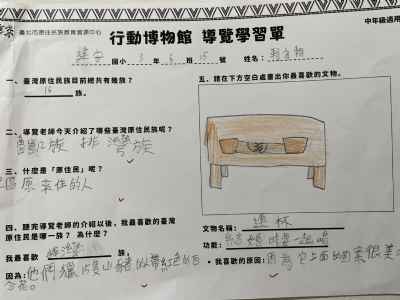 臺北市原住民族教育資源中心
行動博物館 導覽學習單
中年級適用
建安 國小 3 年 6 班 15 號 姓名：
一、臺灣原住民族目前總共有幾族？
16 族。
二、導覽老師今天介紹了哪些臺灣原住民族呢？
族 排灣族
三、什麼是「原住民」呢？
原來住的人
四、聽完導覽老師的介紹以後，我最喜歡的臺灣
原住民是哪一族？ 為什麼？
我最喜歡 排灣族 族，
因為：他們獵 山豬 帶紅色的百
合花。
五、請在下方空白處畫出你最喜歡的文物。
文物名稱： 連杯
功能： 一起喝
• 我喜歡的原因：因為它上面的 案很美